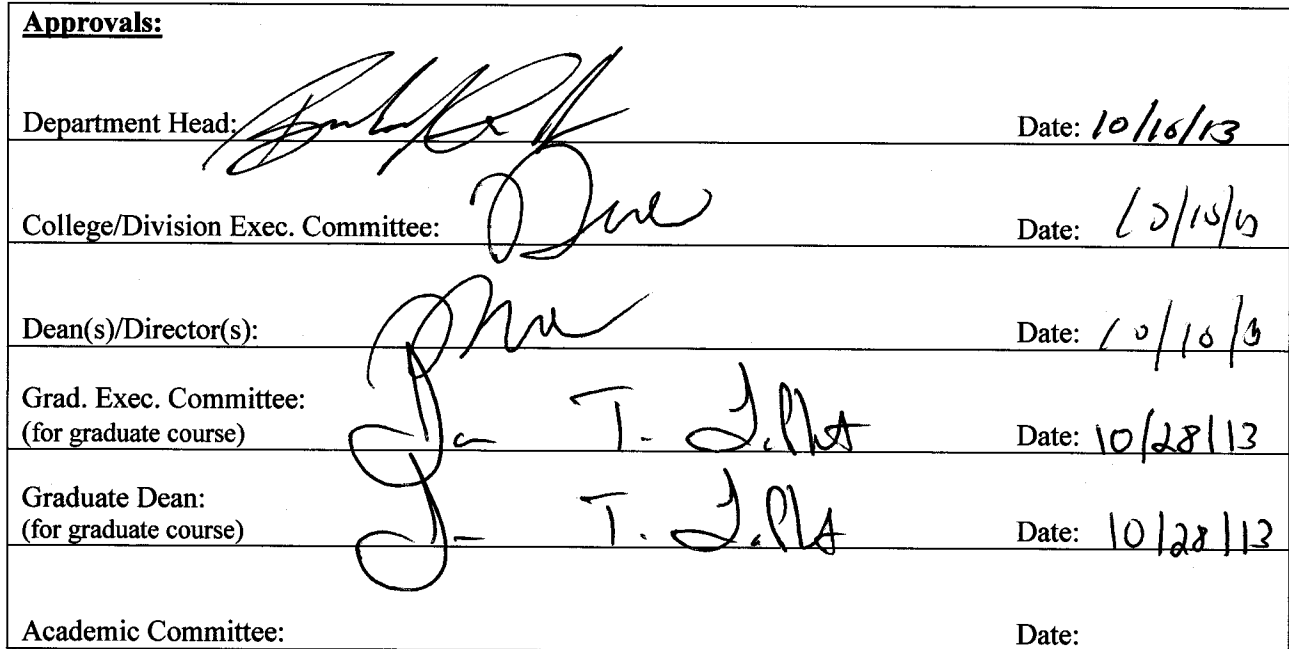 Approvals:
Department Head: Date: 10/16/13
College/Division Exec. Committee: Date:
Dean(s)/Director(s): Date:
Grad. Exec. Committee:
(for graduate course) T. Date: 10/28/13
Graduate Dean:
(for graduate course) T. Date: 10/28/13
Academic Committee: Date: